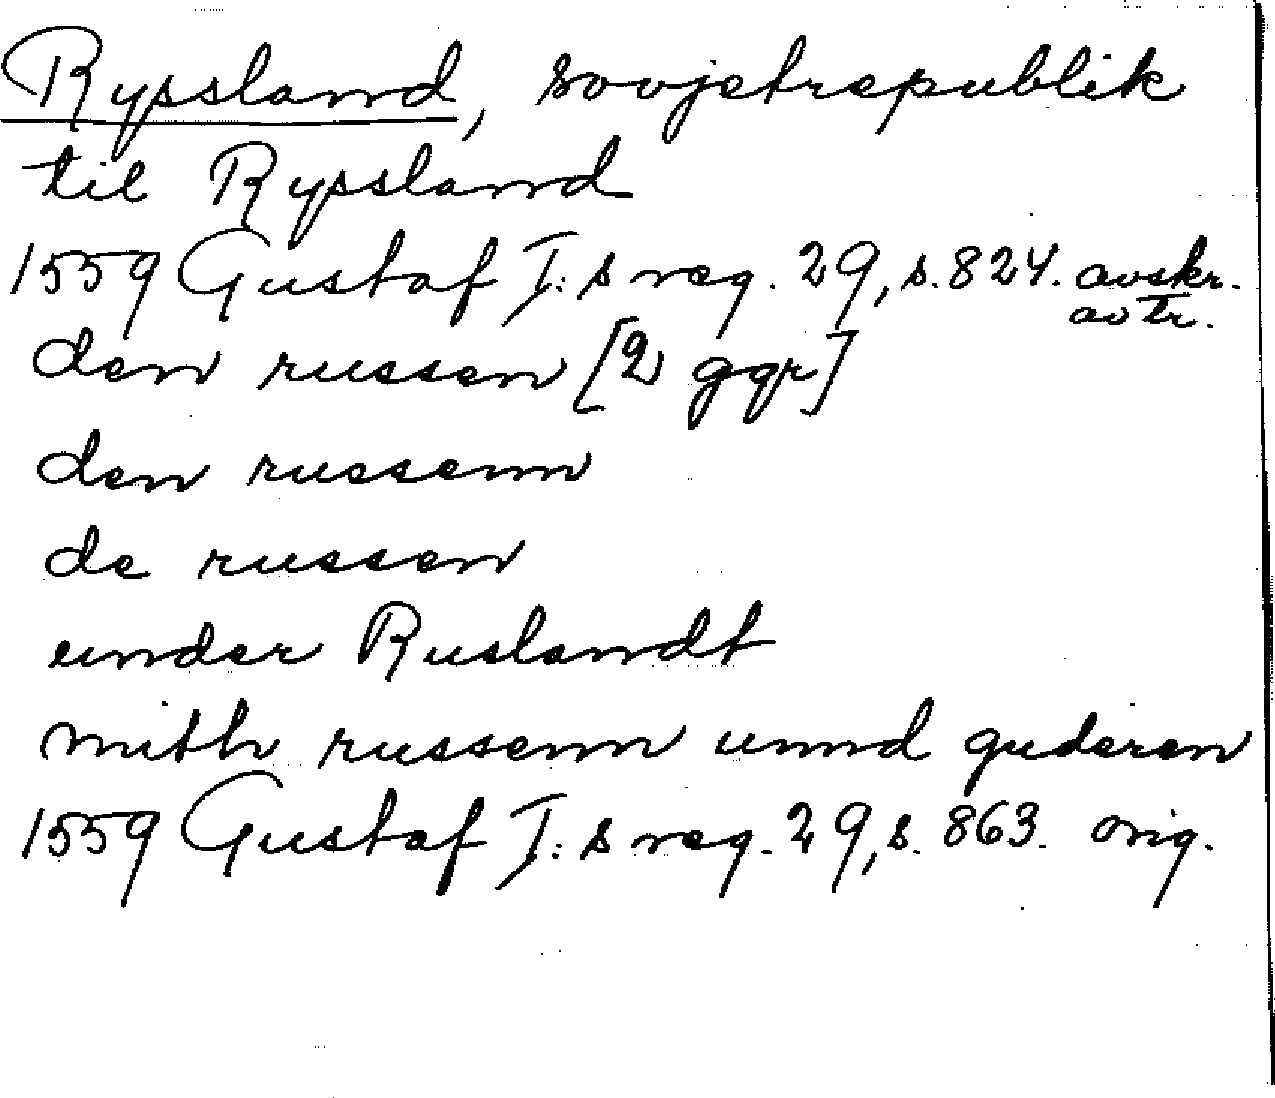 Ryssland, sovjetrepublik
til Ryssland
1559 Gustaf I:s reg. 29, s. 824. avskr.
av tr.
den russen [2 ggr]
den russenn
de russen
under Ruslandt
mith russenn unnd guderen
1559 Gustaf I:s reg. 29, s. 863. orig.